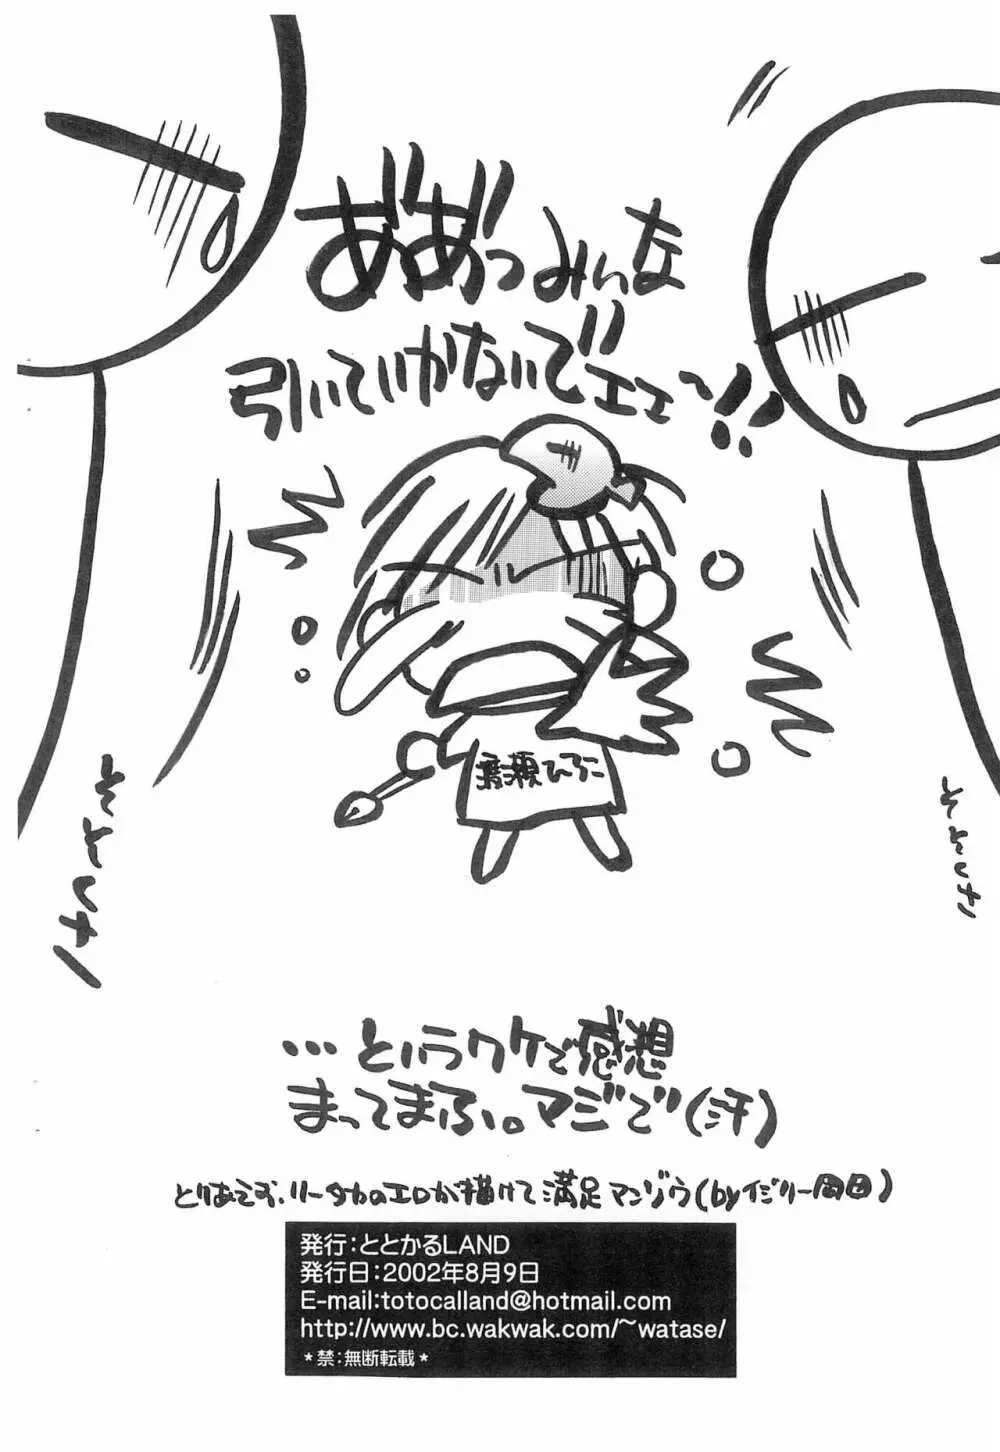 ああっみんな
引いていかないでェェ~!!
渡瀬ひろこ
そそくさ
そそくさ
…というワケで感想
まってまふ。マジで(汗)
とりあえず、リータカのエロが描けて満足マンゾウ(byイジリー岡田)
発行:ととかるLAND
発行日:2002年8月9日
E-mail:totocalland@hotmail.com
http://www.bc.wakwak.com/~watase/
*禁:無断転載*